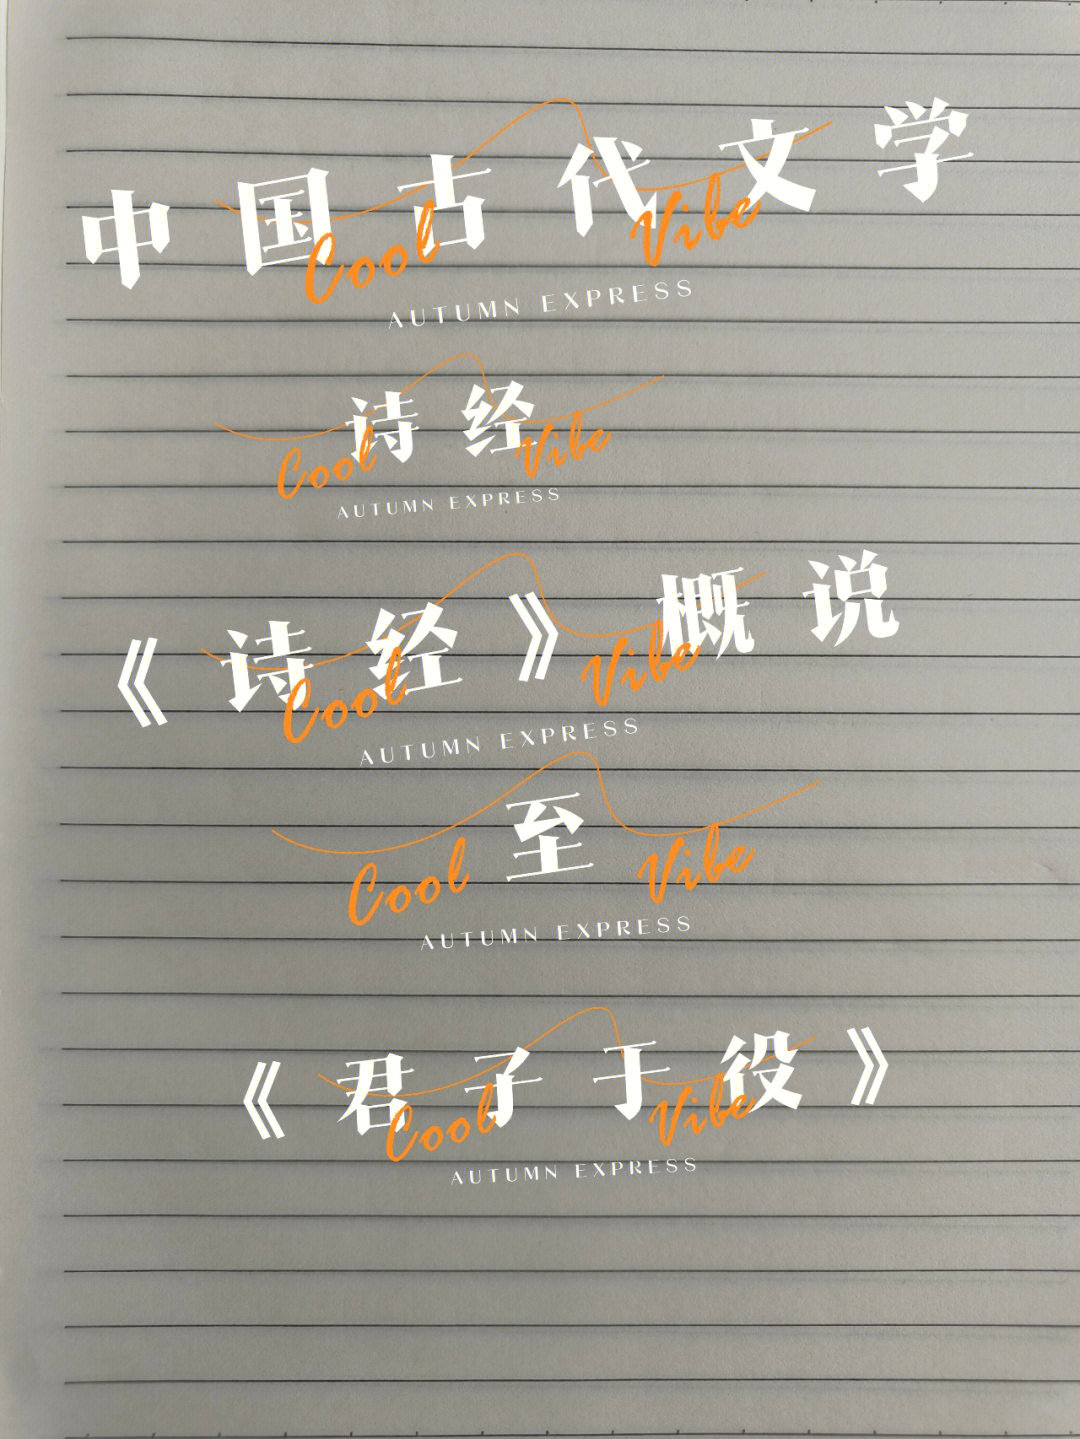 中国古代文学
Cool Vibe
AUTUMN EXPRESS
诗经
Cool Vibe
AUTUMN EXPRESS
《诗经》概说
Cool Vibe
AUTUMN EXPRESS
至
Cool Vibe
AUTUMN EXPRESS
《君子于役》
Cool Vibe
AUTUMN EXPRESS